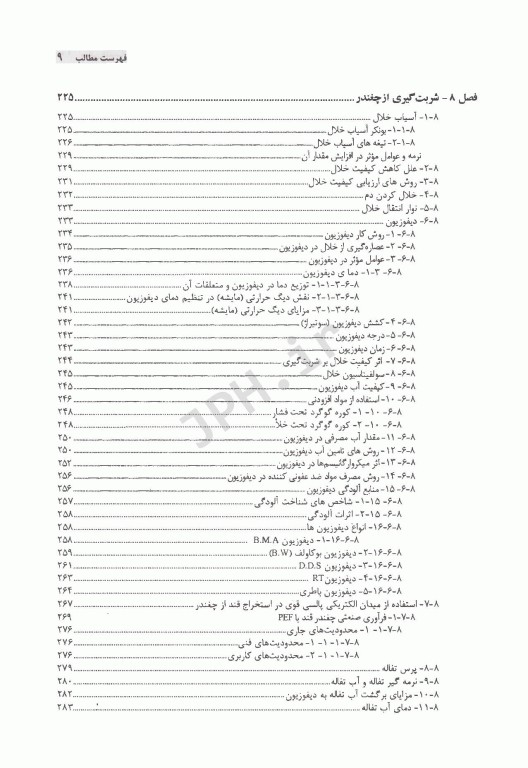 فهرست مطالب ۹
فصل ۸ - شربت‌گیری از چغندر ۲۲۵
۸-۱- آسیاب خلال ۲۲۵
۸-۱-۱- بونکر آسیاب خلال ۲۲۵
۸-۱-۲- تیغه های آسیاب خلال ۲۲۶
نرمه و عوامل مؤثر در افزایش مقدار آن ۲۲۹
۸-۲- علل کاهش کیفیت خلال ۲۲۹
۸-۳- روش های ارزیابی کیفیت خلال ۲۳۱
۸-۴- خلال کردن دم ۲۳۲
۸-۵- نوار انتقال خلال ۲۳۳
۸-۶- دیفوزیون ۲۳۳
۸-۶-۱- روش کار دیفوزیون ۲۳۴
۸-۶-۲- عصاره‌گیری از خلال در دیفوزیون ۲۳۵
۸-۶-۳- عوامل مؤثر در دیفوزیون ۲۳۶
۸-۶-۳-۱- دما ی دیفوزیون ۲۳۶
۸-۶-۳-۱-۱- توزیع دما در دیفوزیون و متعلقات آن ۲۳۸
۸-۶-۳-۱-۲- نقش دیگ حرارتی (مایشه) در تنظیم دمای دیفوزیون ۲۴۱
۸-۶-۳-۱-۳- مزایای دیگ حرارتی (مایشه) ۲۴۱
۸-۶-۴- کشش دیفوزیون (سوتیراژ) ۲۴۲
۸-۶-۵- درجه دیفوزیون ۲۴۳
۸-۶-۶- زمان دیفوزیون ۲۴۳
۸-۶-۷- اثر کیفیت خلال بر شربت‌گیری ۲۴۴
۸-۶-۸- سولفیتاسیون خلال ۲۴۵
۸-۶-۹- کیفیت آب دیفوزیون ۲۴۵
۸-۶-۱۰- استفاده از مواد افزودنی ۲۴۶
۸-۶-۱۰-۱- کوره گوگرد تحت فشار ۲۴۸
۸-۶-۱۰-۲- کوره گوگرد تحت خلأ ۲۴۸
۸-۶-۱۱- مقدار آب مصرفی در دیفوزیون ۲۵۰
۸-۶-۱۲- روش های تامین آب دیفوزیون ۲۵۰
۸-۶-۱۳- اثر میکروارگانیسم‌ها در دیفوزیون ۲۵۲
۸-۶-۱۴- روش مصرف مواد ضد عفونی کننده در دیفوزیون ۲۵۶
۸-۶-۱۵- منابع آلودگی دیفوزیون ۲۵۶
۸-۶-۱۵-۱- شاخص های شناخت آلودگی ۲۵۷
۸-۶-۱۵-۲- اثرات آلودگی ۲۵۸
۸-۶-۱۶- انواع دیفوزیون ها ۲۵۸
۸-۶-۱۶-۱- دیفوزیون B.M.A ۲۵۸
۸-۶-۱۶-۲- دیفوزیون بوکاولف (B.W) ۲۵۹
۸-۶-۱۶-۳- دیفوزیون D.D.S ۲۶۱
۸-۶-۱۶-۴- دیفوزیون RT ۲۶۳
۸-۶-۱۶-۵- دیفوزیون باطری ۲۶۴
۸-۷- استفاده از میدان الکتریکی پالسی قوی در استخراج قند از چغندر ۲۶۷
۸-۷-۱- فرآوری صنعتی چغندر قند با PEF ۲۶۹
۸-۷-۱-۱- محدودیت‌های جاری ۲۷۶
۸-۷-۱-۱-۱- محدودیت‌های فنی ۲۷۶
۸-۷-۱-۱-۲- محدودیت‌های کاربری ۲۷۶
۸-۸- پرس تفاله ۲۷۹
۸-۹- نرمه گیر تفاله و آب تفاله ۲۸۰
۸-۱۰- مزایای برگشت آب تفاله به دیفوزیون ۲۸۲
۸-۱۱- دمای آب تفاله ۲۸۳
JPH.ir